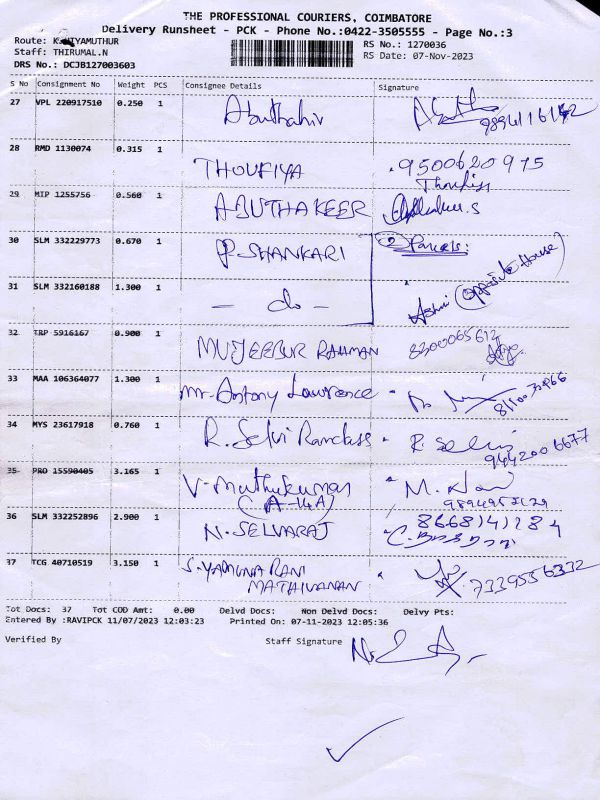 THE PROFESSIONAL COURIERS, COIMBATORE
Delivery Runsheet - PCK - Phone No.:0422-3505555 - Page No.:3
Route: TYAMUTHUR
RS No.: 1270036
Staff: THIRUMAL.N
RS Date: 07-Nov-2023
DRS No.: DCJB127003603
S No Consignment No Weight PCS Consignee Details Signature
27 VPL 220917510 0.250 1 Abuthahir
28 RMD 1130074 0.315 1 THOUFIYA 9500620975
29 MIP 1255756 0.560 1 ABUTHAKEER
30 SLM 332229773 0.670 1 P. SHANKARI ② Parcels:
31 SLM 332160188 1.300 1 - do - (opposite House)
32 TRP 5916167 0.900 1 MUJEEBUR RAHMAN
33 MAA 106364077 1.300 1 Mr. Antony Lawrence
34 MYS 23617918 0.760 1 R. Selvi Ramdass 9442006677
35 PRO 15590405 3.165 1 V. Muthukumar
(A-14A)
36 SLM 332252896 2.900 1 N. SELVARAJ
37 TCG 40710519 3.150 1 S. YAMUNA RANI 7339556332
MATHIVANAN
Tot Docs: 37 Tot COD Amt: 0.00 Delvd Docs: Non Delvd Docs: Delvy Pts:
Entered By :RAVIPCK 11/07/2023 12:03:23 Printed On: 07-11-2023 12:05:36
Verified By Staff Signature